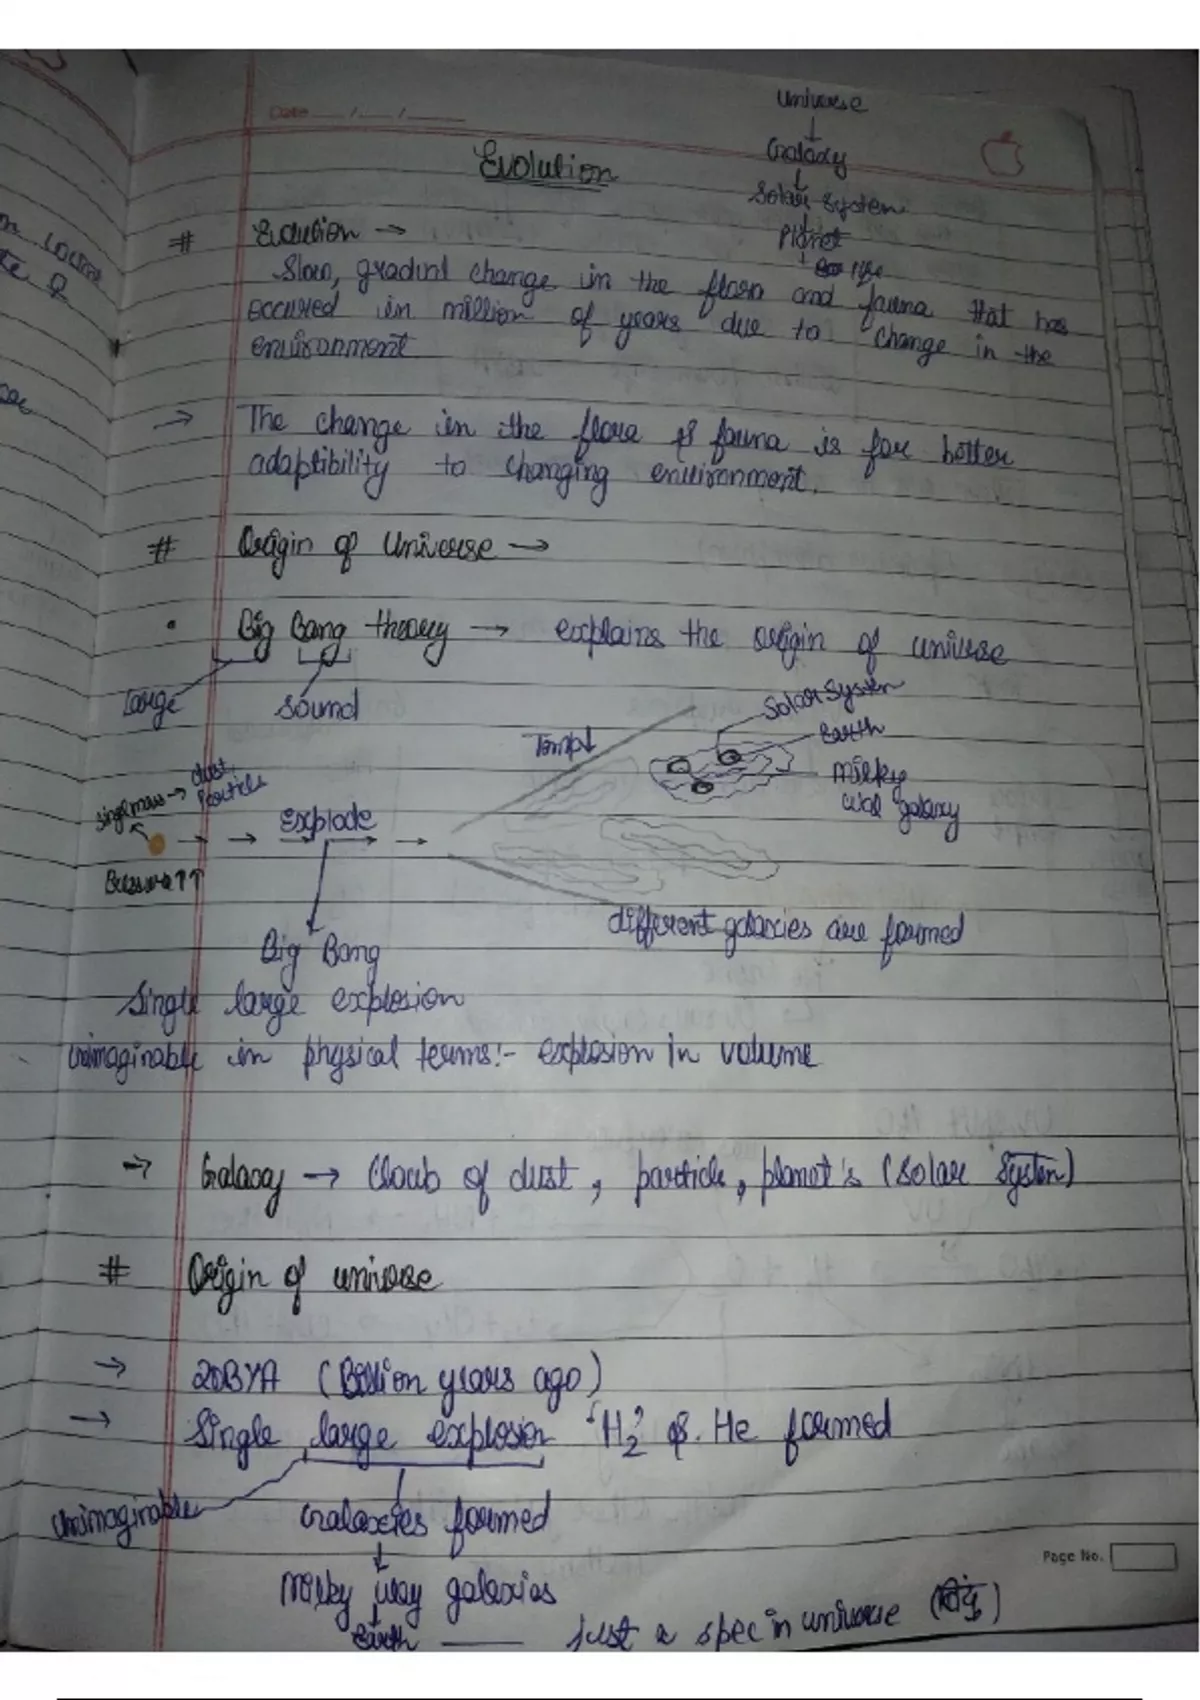 Date ___/___/___
Universe
↓
Galaxy
↓
Solar System
↓
Planet
↓ life
Evolution
# Evolution →
Slow, gradual change in the flora and fauna that has
occured in million of years due to change in the
environment
→ The change in the flora & fauna is for better
adaptibility to changing environment.
# Origin of Universe →
• Big Bang theory → explains the origin of universe
large sound
Solar System
Earth
Temp↓
milky
galaxy
single mass → dust,
particle
Explode
different galaxies are formed
Big Bang
Single large explosion
unimaginable in physical terms:- explosion in volume
→ Galaxy → Cloub of dust, particle, planet's (Solar System)
# Origin of universe
→ 20BYA (Billion years ago)
→ Single large explosion 'H2' & He formed
Unimaginable
Galaxies formed
↓
Milky way galaxies
↓
Earth ___ Just a spec in universe
Page No.